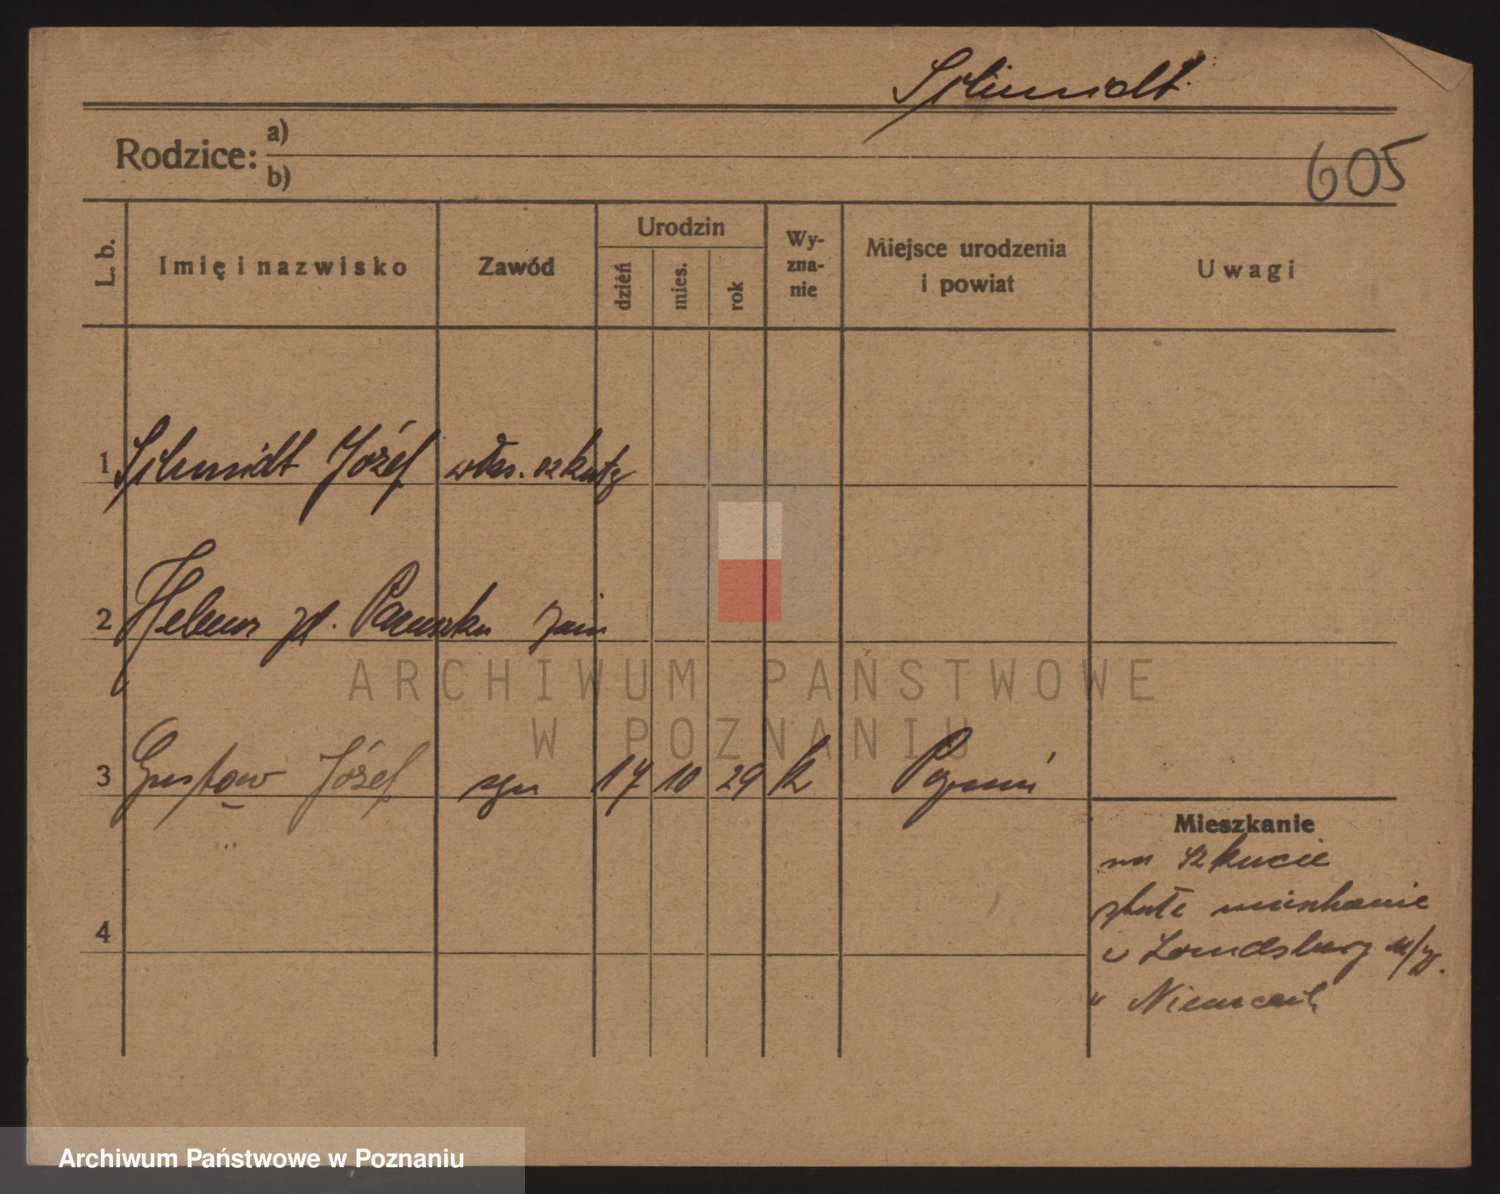 Schmidt
605
Rodzice: a)
b)
L. b.
Imię i nazwisko
Zawód
Urodzin
dzień
mies.
rok
Wy-
zna-
nie
Miejsce urodzenia
i powiat
Uwagi
1 Schmidt Józef właś. szkuty
2 Helena zd. żona
3 Gustaw Józef syn 17 10 29 k Poznań
4
Mieszkanie
na szkucie
stałe mieszkanie
w Landsberg n/W.
w Niemczech
ARCHIWUM PAŃSTWOWE
W POZNANIU
Archiwum Państwowe w Poznaniu